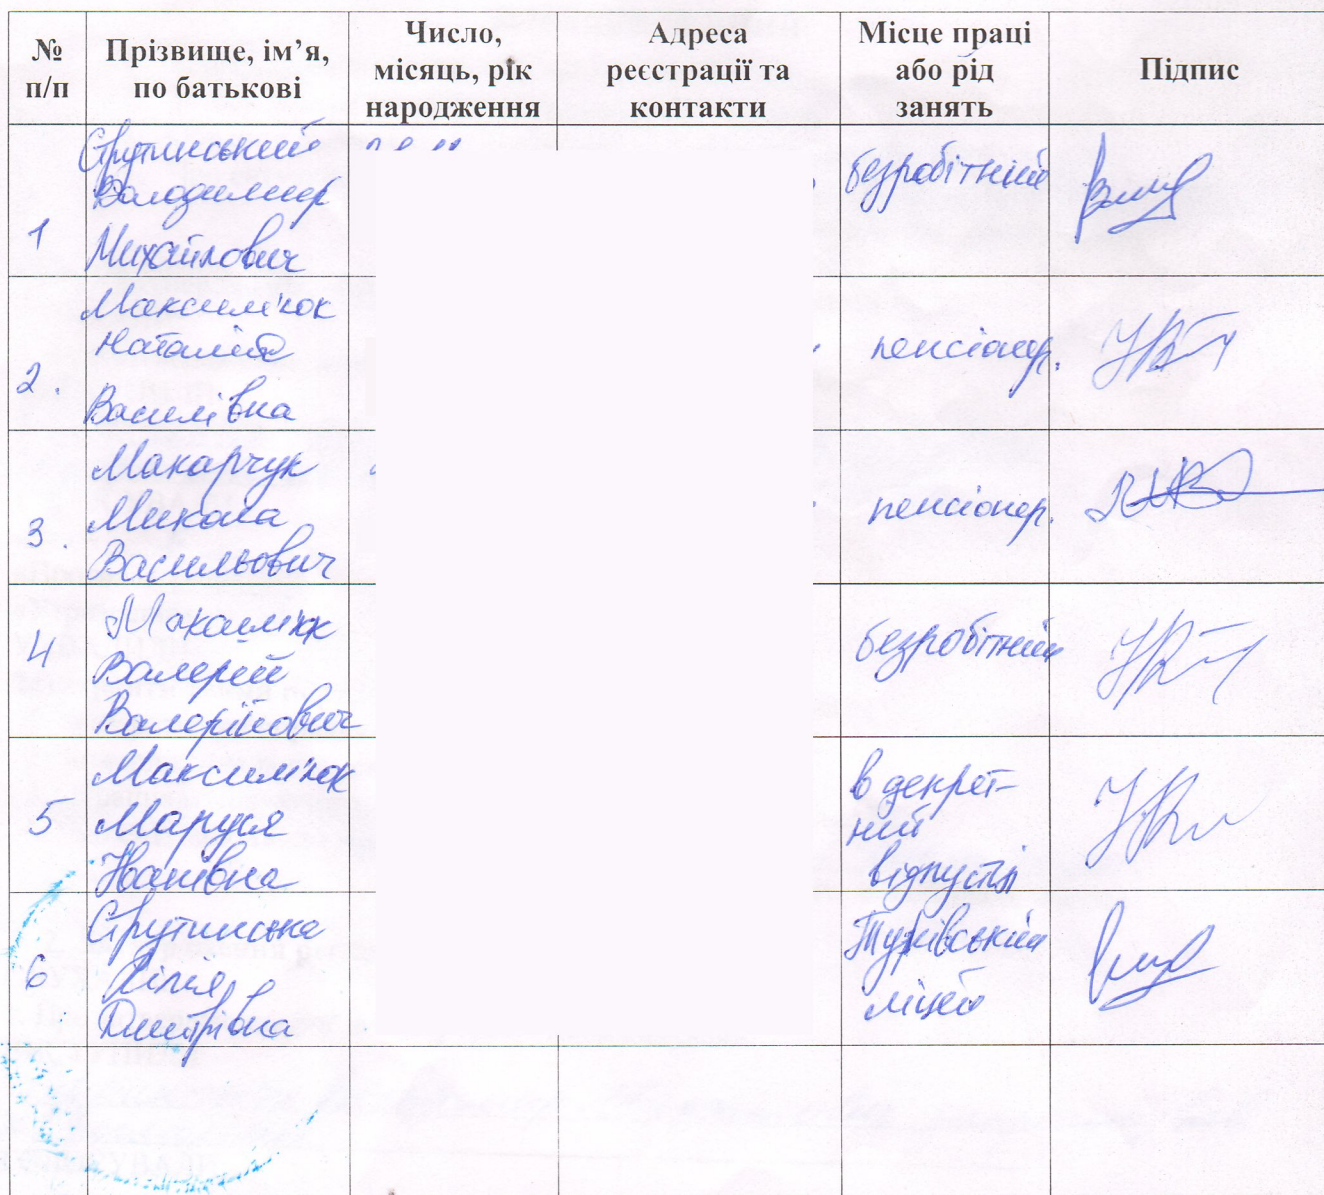 № п/п
Прізвище, ім’я, по батькові
Число, місяць, рік народження
Адреса реєстрації та контакти
Місце праці або рід занять
Підпис
1
Струтинський
Володимир
Михайлович
безробітний
2.
Максимюк
Наталія
Василівна
пенсіонер.
3.
Макарчук
Микола
Васильович
пенсіонер.
4
Максимюк
Валерій
Валерійович
безробітний
5
Максимюк
Маруся
Іванівна
в декрет-
ній
відпустці
6
Струтинська
Лілія
Дмитрівна
ліцей